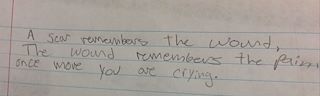 A scar remembers the wound,
The wound remembers the pain,
once more you are crying.